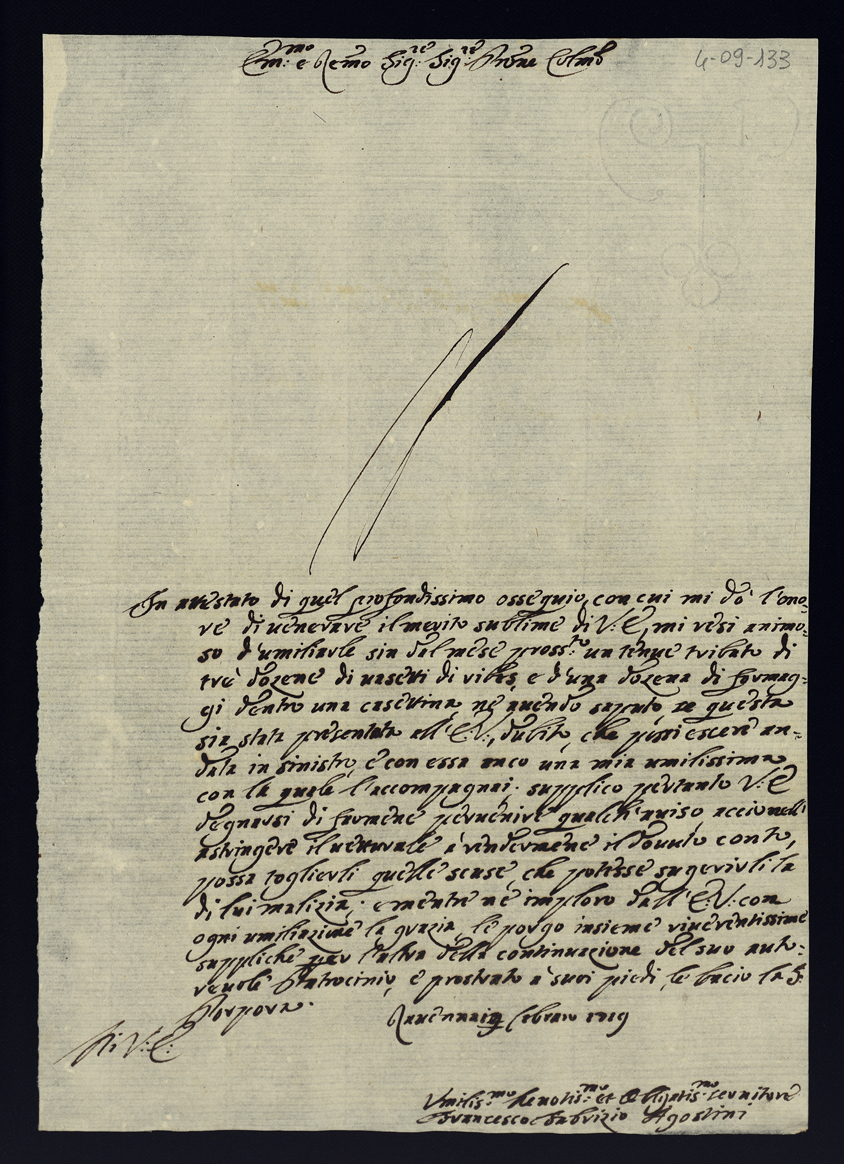 Em:mo e Rmo Sig:re Sig:re Prone Colmo
4-09-133
In attestato di quel profondissimo ossequio, con cui mi dò l'ono-
re di venerare il merito sublime di V: E, mi resi animo-
so d'umiliarle sin dal mese pross:to un tenue tributo di
trè dozene di vasetti di ribes, e d'una dozena di formag-
gi dentro una casettina, nè avendo saputo, se questa
sia stata presentata all'E.V:, dubito, che possi essere an-
data in sinistro, e con essa anco una mia umilissima
con la quale l'accompagnai. supplico pertanto V: E
degnarsi di farmene pervenire qualch'aviso acciò nell'
astringere il vetturale à rendermene il dovuto conto,
possa toglierli quelle scuse, che potesse sugerirli la
di lui malizia; e mentre nè imploro dall'E:V: con
ogni umiliazione la grazia, le porgo insieme riverentissime
suppliche per l'altra della continuazione del suo auto-
revole Patrocinio, e prostrato a' suoi piedi, le bacio la S.
Porpora.
Ravenna 19 Febraro 1719
Di V: E:
Umilis:mo Devotis:mo et Obligatis:mo servitore
Francesco Fabrizio Agostini